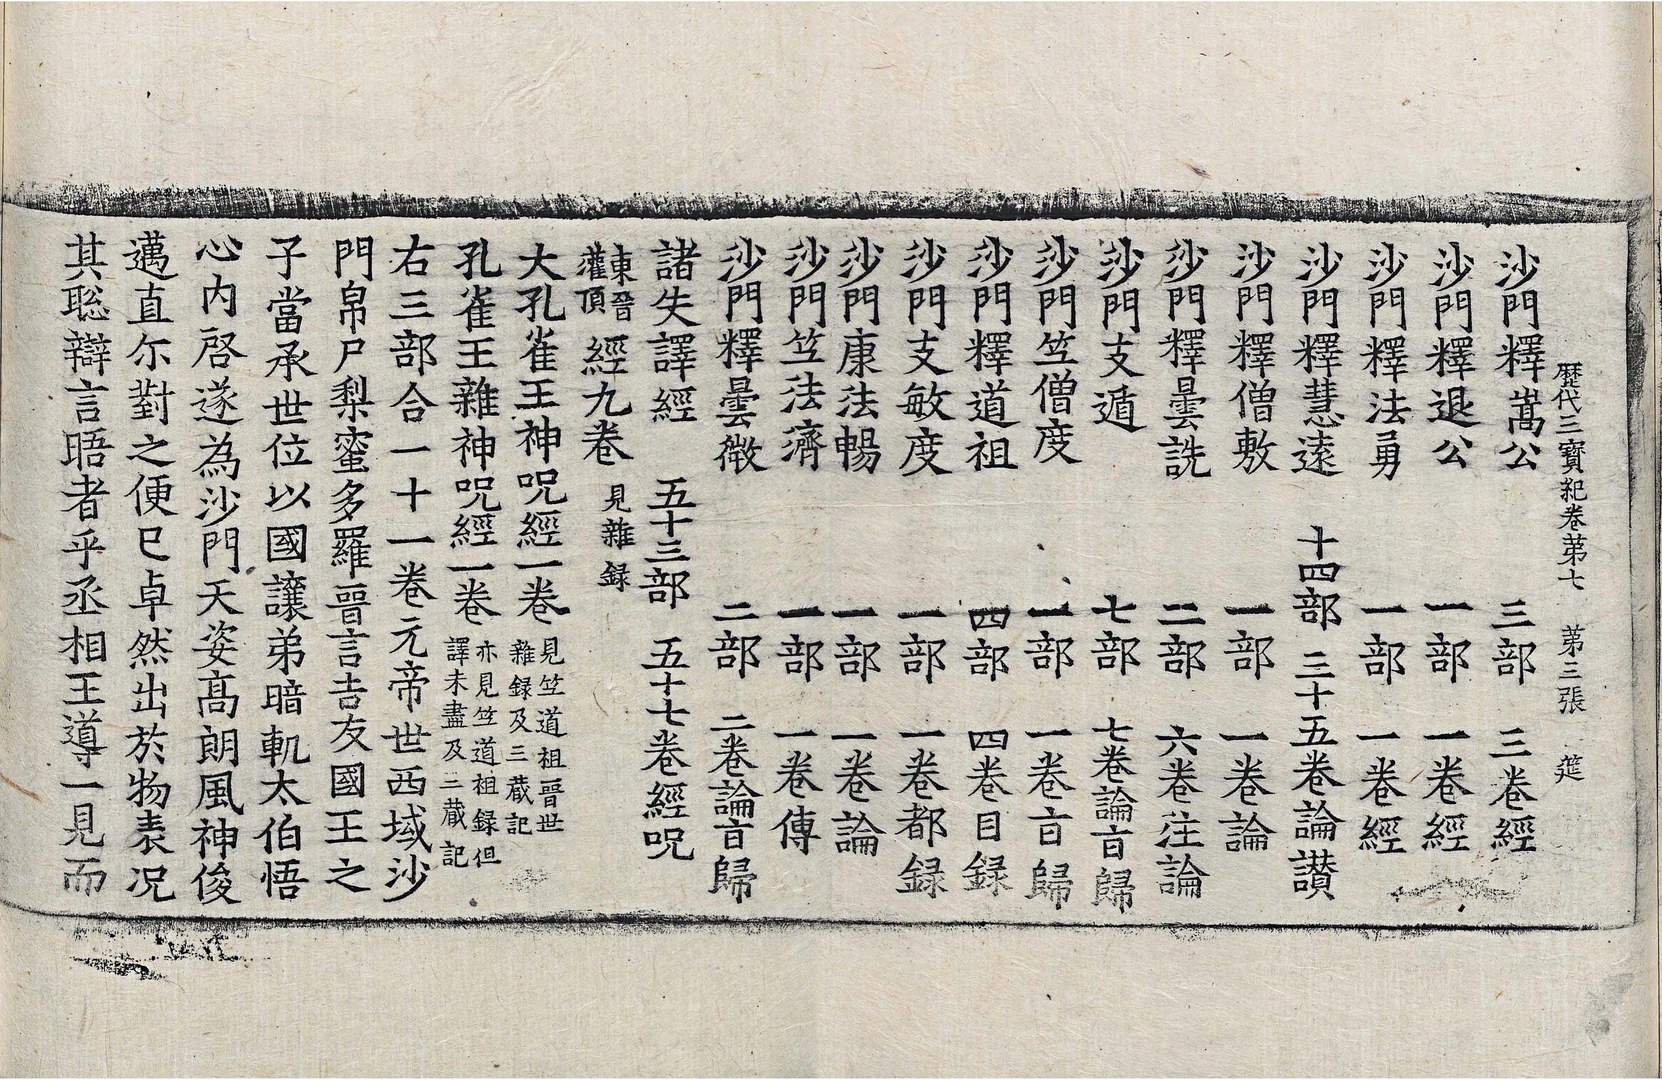 歷代三寶紀卷苐七 苐三張 筵
沙門釋嵩公 三部 三卷經
沙門釋退公 一部 一卷經
沙門釋法勇 一部 一卷經
沙門釋慧遠 十四部 三十五卷論讃
沙門釋僧敷 一部 一卷論
沙門釋曇詵 二部 六卷注論
沙門支遁 七部 七卷論㫖歸
沙門竺僧度 一部 一卷㫖歸
沙門釋道祖 四部 四卷目録
沙門支敏度 一部 一卷都録
沙門康法暢 一部 一卷論
沙門竺法濟 一部 一卷傳
沙門釋曇微 二部 二卷論㫖歸
諸失譯經 五十三部 五十七卷經呪
東晉灌頂經九卷 見雜録
大孔雀王神呪經一卷 見竺道祖晉世雜録及三藏記
孔雀王雜神呪經一卷 亦見竺道祖録但譯未盡及三藏記
右三部合一十一卷元帝世西域沙
門帛尸梨蜜多羅晉言吉友國王之
子當承世位以國讓弟暗軌太伯悟
心内啓遂為沙門天姿髙朗風神俊
邁直尓對之便已卓然出於物表况
其聡辯言晤者乎丞相王導一見而